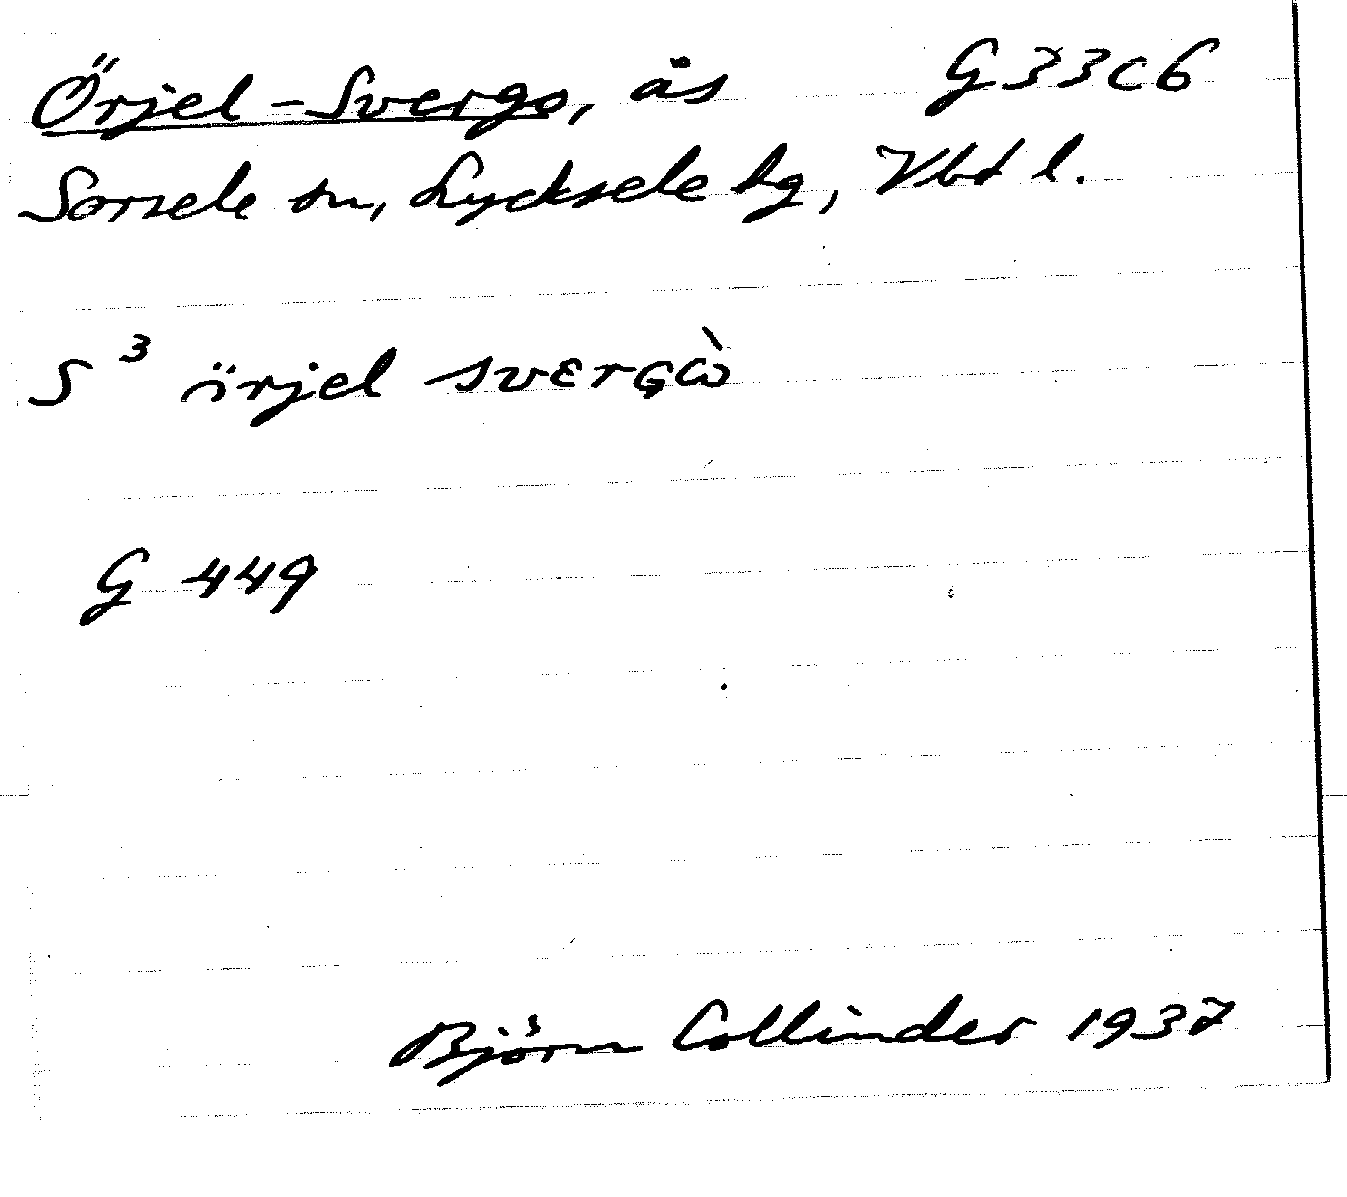 Örjel-Svergo, ås G33C6
Sorsele sn, Lycksele hg, Vbt l.
S³ örjel svɛrgò
G 449
Björn Collinder 1937